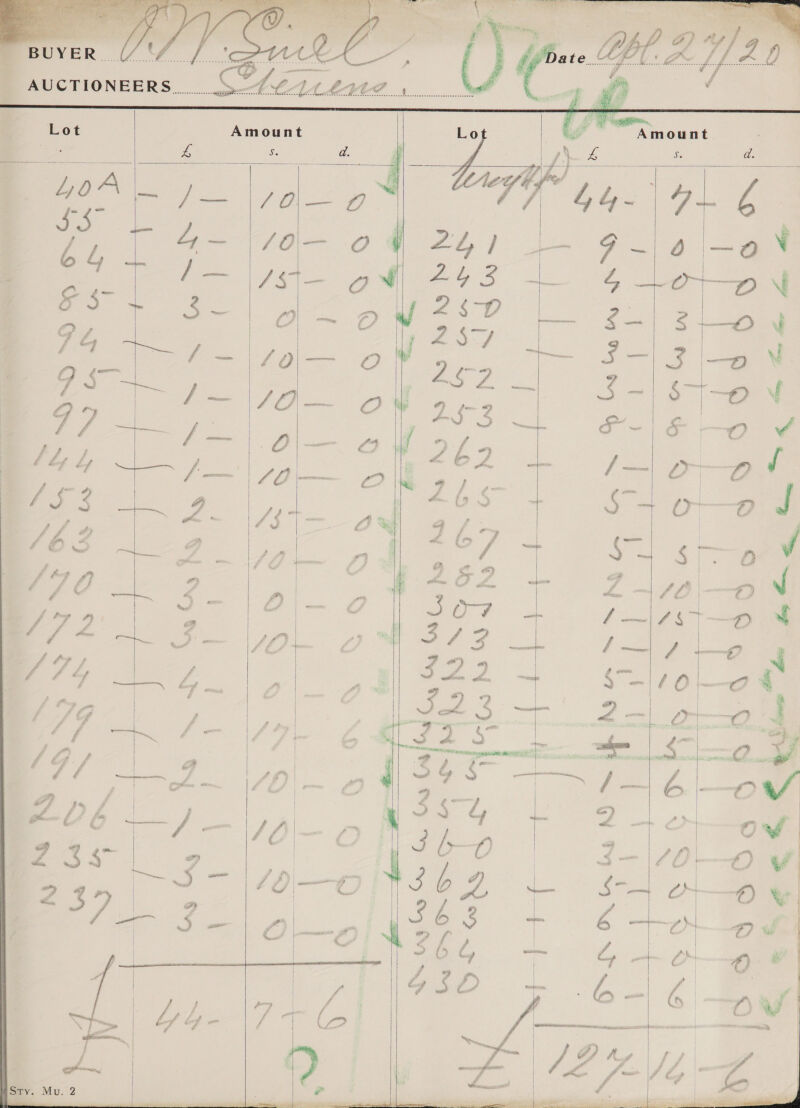 BUYER
Date Apl. 27/20
AUCTIONEERS Stevens.
Lot Amount
£ s. d.
40A — 1 — 10 — 0
55 — 4 — 10 — 0
64 — 1 — 15 — 0
85 — 3 — 0 — 0
94 — 1 — 10 — 0
95 — 1 — 10 — 0
97 — 1 — 0 — 0
144 — 1 — 10 — 0
153 — 2 — 15 — 0
163 — 2 — 10 — 0
170 — 3 — 0 — 0
172 — 3 — 10 — 0
174 — 4 — 0 — 0
179 — 1 — 17 — 6
191 — 2 — 10 — 0
206 — 1 — 10 — 0
235 — 3 — 10 — 0
237 — 3 — 0 — 0
£ 44 - 7 - 6
?
Lot Amount
£ s. d.
44 - 7 - 6
241 — 9 — 0 — 0
243 — 4 — 0 — 0
250 — 3 — 3 — 0
251 — 3 — 3 — 0
252 — 3 — 5 — 0
253 — 8 — 8 — 0
262 — 1 — 0 — 0
265 — 5 — 0 — 0
267 — 5 — 5 - 0
282 — 2 — 10 — 0
307 — 1 — 15 — 0
313 — 1 — 1 — 0
322 — 5 — 10 — 0
323 — 2 — 0 — 0
325 — 5 — 0
345 — 1 — 6 — 0
354 — 2 — 0 0
360 3 — 10 — 0
362 — 5 — 0 — 0
363 — 6 — 0 — 0
364 — 4 — 0 — 0
430 — 6 — 6 — 0
£ 127 - 14 - 6
STY. MU. 2